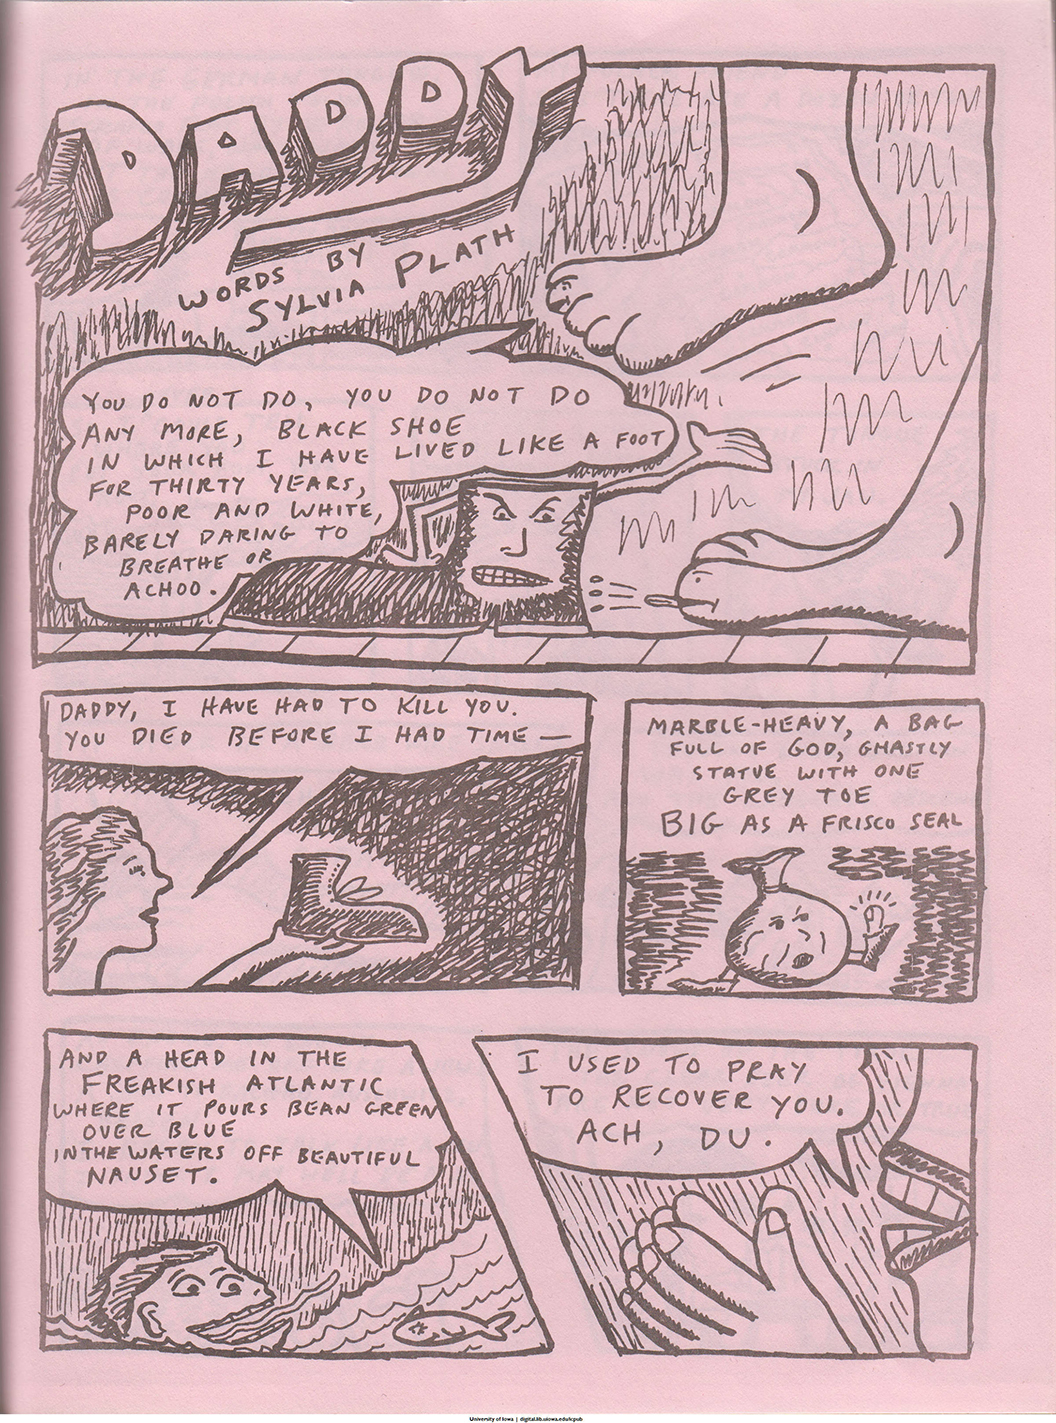 DADDY
WORDS BY
SYLVIA PLATH
YOU DO NOT DO, YOU DO NOT DO
ANY MORE, BLACK SHOE
IN WHICH I HAVE LIVED LIKE A FOOT
FOR THIRTY YEARS,
POOR AND WHITE,
BARELY DARING TO
BREATHE OR
ACHOO.
DADDY, I HAVE HAD TO KILL YOU.
YOU DIED BEFORE I HAD TIME —
MARBLE-HEAVY, A BAG
FULL OF GOD, GHASTLY
STATUE WITH ONE
GREY TOE
BIG AS A FRISCO SEAL
AND A HEAD IN THE
FREAKISH ATLANTIC
WHERE IT POURS BEAN GREEN
OVER BLUE
IN THE WATERS OFF BEAUTIFUL
NAUSET.
I USED TO PRAY
TO RECOVER YOU.
ACH, DU.
University of Iowa | digital.lib.uiowa.edu/cpub